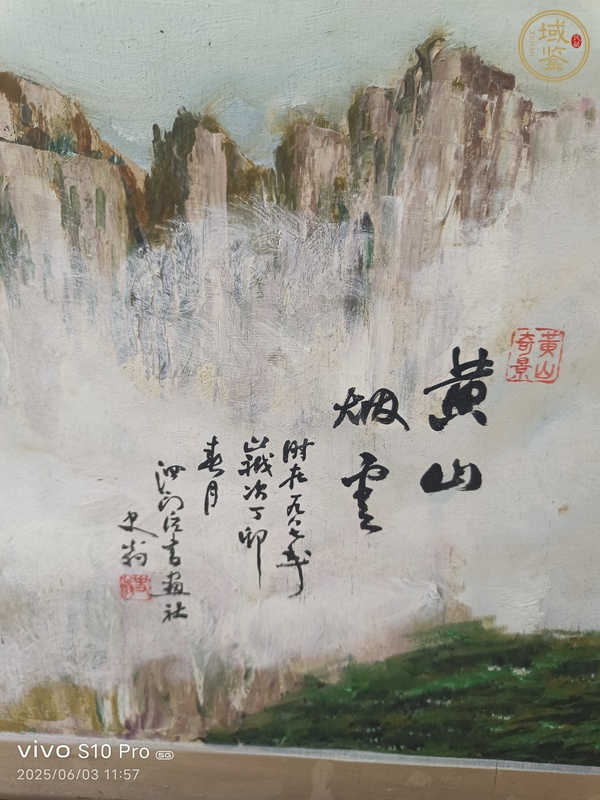 域鉴
黄山
奇景
黄山
烟雲
时在一九八七年
歲次丁卯
春月
書画社
史
vivo S10 Pro 5G
2025/06/03 11:57